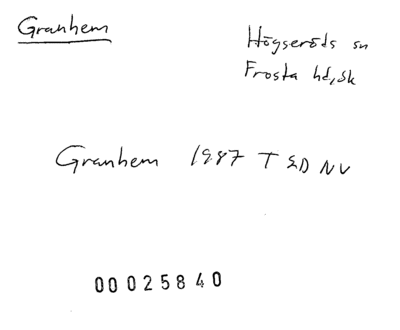 Granhem
Högseröds sn
Frosta hd, Sk
Granhem 1987 T 2D NV
00025840